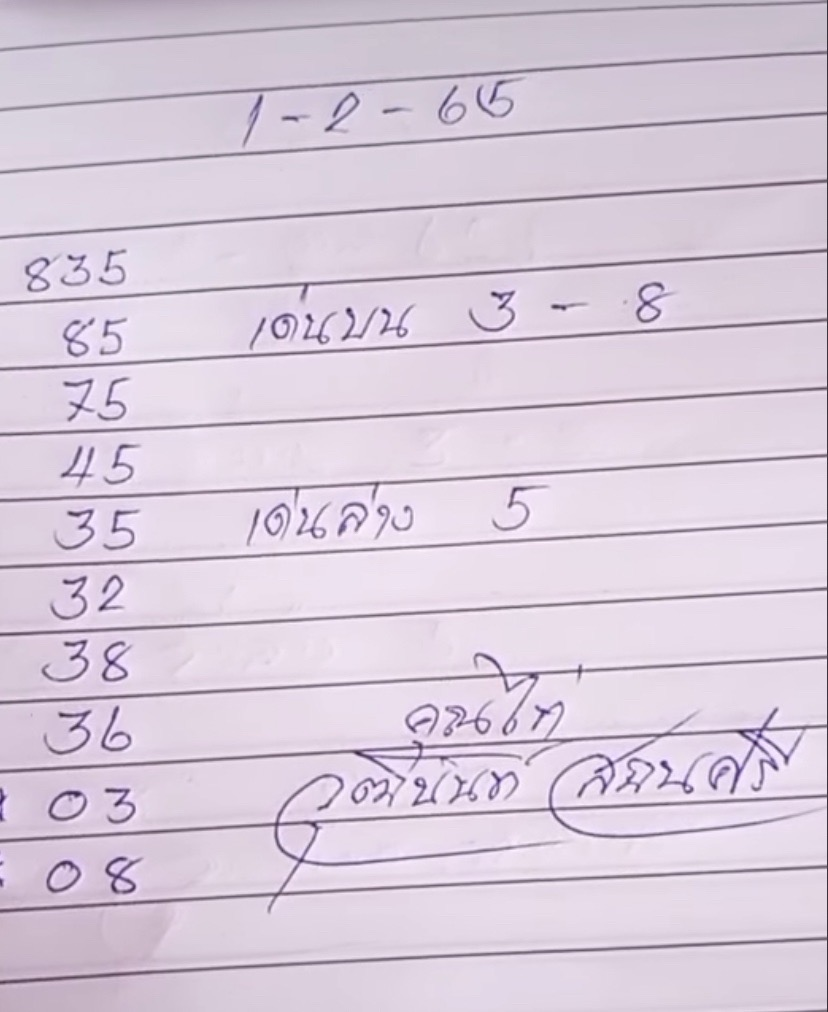 1 - 2 - 65
835
85 เด่นบน 3 - 8
75
45
35 เด่นล่าง 5
32
38
36 คุณไก่
03 วุฒินันท์
08